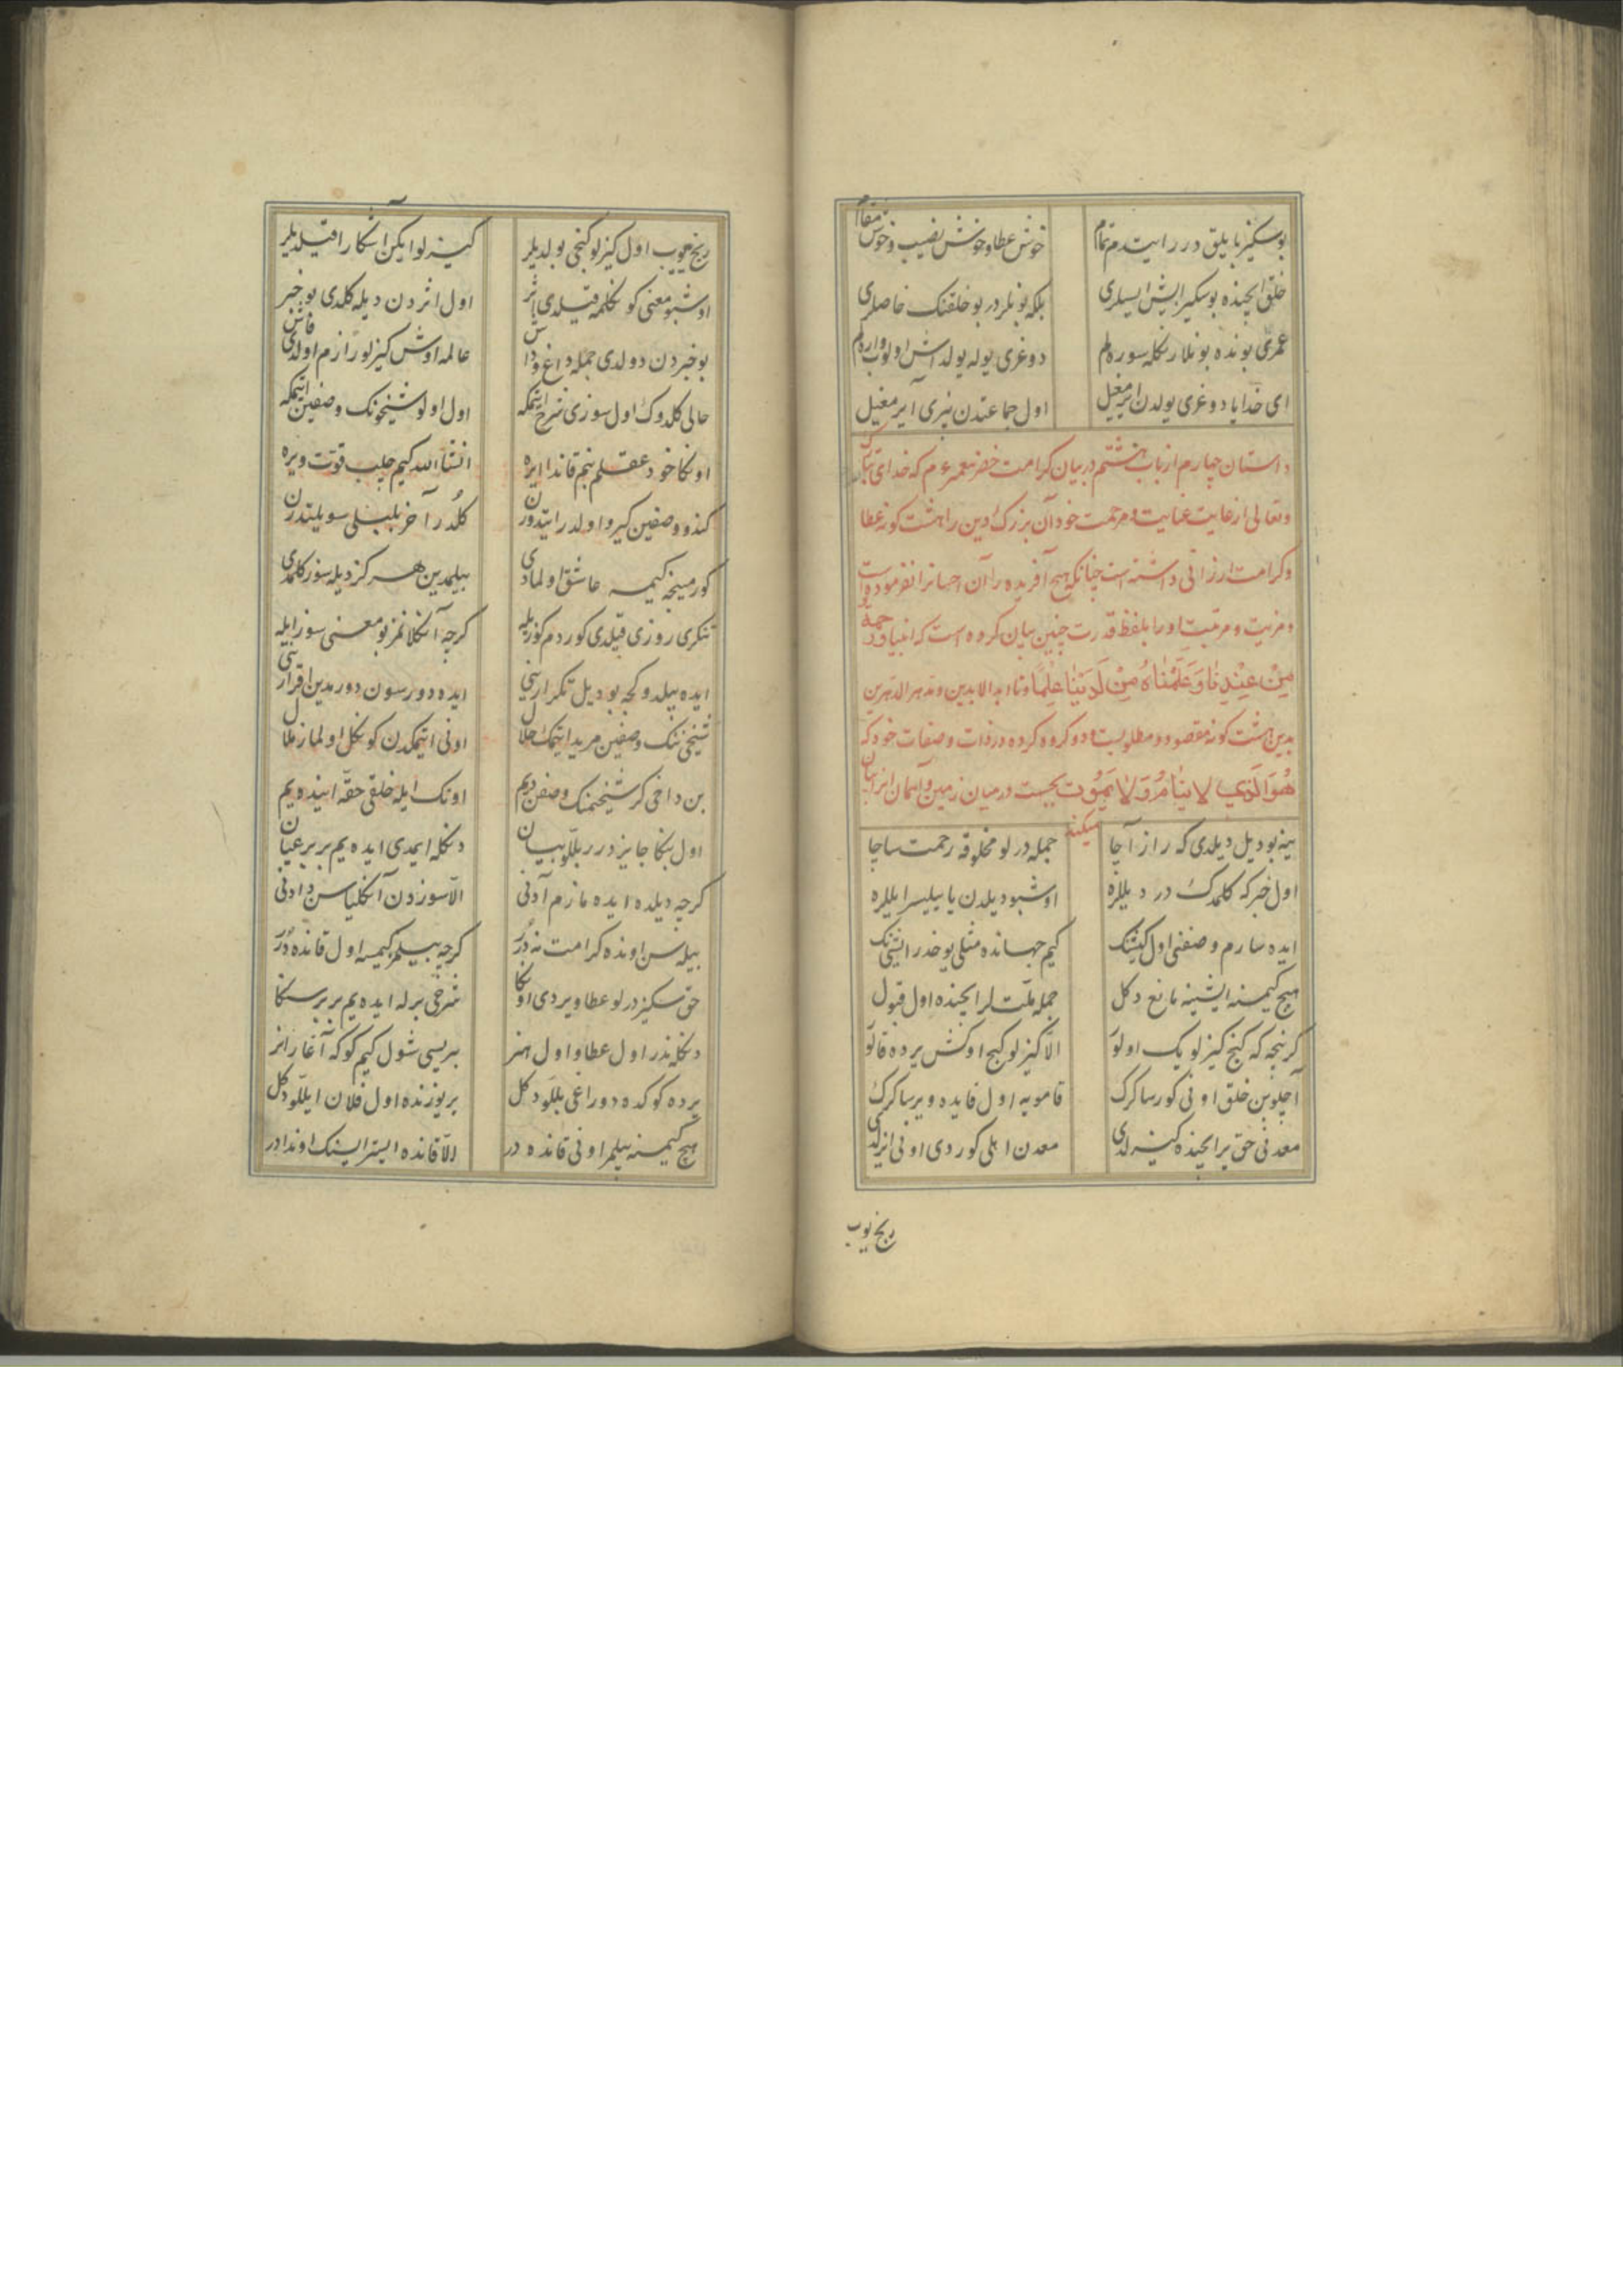 بو سکیز بایلق درر ایتدم تمام خوش عطا و خوش نصیب و خوش مقام
خلق ایچنده بو سکیز ایش ایسلری بلکه بونلردر بو خلقنک خاصلری
عمری بونده بونلار نکله سوره لم دوغری یوله یولداش اولوب واره لم
ای خدایا دوغری یولدن ایرمغیل اول جماعتدن بیزی آیرمغیل
داستان چهارم از باب هشتم در بیان کرامت خضر که خدای تبارک
وتعالی از غایت عنایت و مرحمت خود آن بزرگ دین را هشت گونه عطا
و کرامت ارزانی داشته است چنانکه هیچ آفریده را آن احسانرا نفرموده است
و مزیت و مرتبت او را بلفظ قدرت چنین بیان کرده است که
مِنْ عِنْدِنَا وَعَلَّمْنَاهُ مِنْ لَدُنَّا عِلْمًا وتا ابد الابدین ودهر الدهرین
بدین هشت گونه مقصود و مطلوبست در ذات و صفات خود که
هُوَ الَّذِي لَا يَنَامُ وَلَا يَمُوت در میان زمین و آسمان
میکند
ینه بو دیل دیلدی که راز آچا جمله درلو مخلوقه رحمت ساچا
اول خبر که کلمدک در دیللره اوشبو دیلدن یاییلیسر ایللره
ایده سارم وصفنی اول کیشنک کیم جهانده مثلی یوخدر ایشنک
هیچ کیمسنه ایشینه مانع دکل جمله ملّت لر ایچنده اول قبول
کرنجه که کنج کیزلو یک اولو الّا کیزلو کنج اوکش یرده قالو
آچلوبن خلق اونی کورسا کرک قامویه اول فایده ویرسا کرک
معدنی حق یر ایچنده کیزلدی معدن اهلی کوردی اونی ایزلدی
رنج ییوب
رنج ییوب اول کیزلو کنجی بولدیلر کیزلو ایکن آشکارا قیلدیلر
اوشبو معنی کونکلمه قیلدی اثر اول اثردن دیله کلدی بو خبر
بو خبردن دولدی جمله داغ و داش عالمه اوش کیزلو رازم اولدی فاش
حالی کلدوک اول سوزی شرح ایتمکه اول اولو شیخونک وصفین ایتمکه
اونکا خود عقلم بنم قاندا ایره انشاالله کیم چلب قوّت ویره
کندو وصفین کیرو اولدر ایتدورن کلدر آخر بلبلی سویلتدرن
کورمینجه کیمسه عاشق اولمادی بیلمدین هرکز دیله سوز کلمدی
تنکری روزی قیلدی کوردم کوزیله کرچه آنکلانمز بو معنی سوز ایله
ایده بیلدوکجه بو دیل تکرارینی ایده دورسون دورمدین اقرارینی
شیخی ننک وصفین مرید ایتمک حلال اونی ایتمکدن کونکل اولماز ملال
بن داخی کر شیخمنک وصفن دیم اونک ایله خلقی حقّه اینده یم
اول بنکا جایز درر بللو بیان دنکله ایمدی ایده یم بر بر عیان
کرچه دیلده ایده مازم آدنی الّا سوزدن آنکلیاسن دادنی
بیله سن اونده کرامت نه دُرر کرچه بیلمز کیمسه اول قانده دُرر
حق سکیز درلو عطا ویردی اونکا شرحی برله ایده یم بر بر سنکا
دنکله ندر اول عطا و اول هنر بریسی شول کیم کوکه آغار انر
یرده کوکده دوراغی بللو دکل یر یوزنده اول فلان ایللو دکل
هیچ کیمسنه بیلمز اونی قانده در الّا قانده ایسترایسنک اوندادر